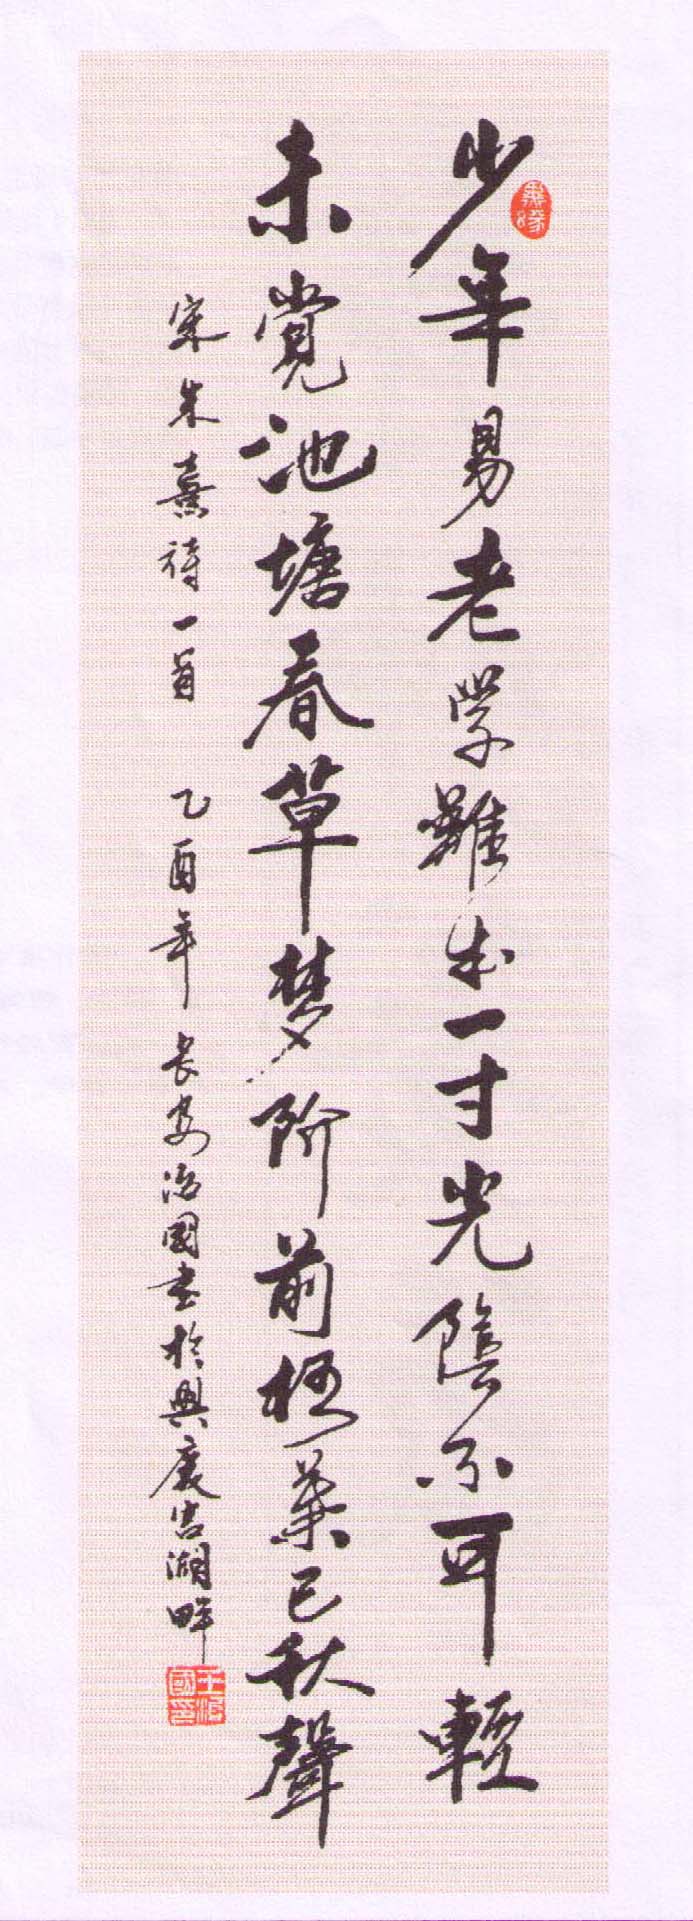 少年易老学難成一寸光陰不可輕
未覺池塘春草梦阶前梧葉已秋聲
宋朱熹詩一首 乙酉年 長安治國书於興慶宫湖畔
王治國印